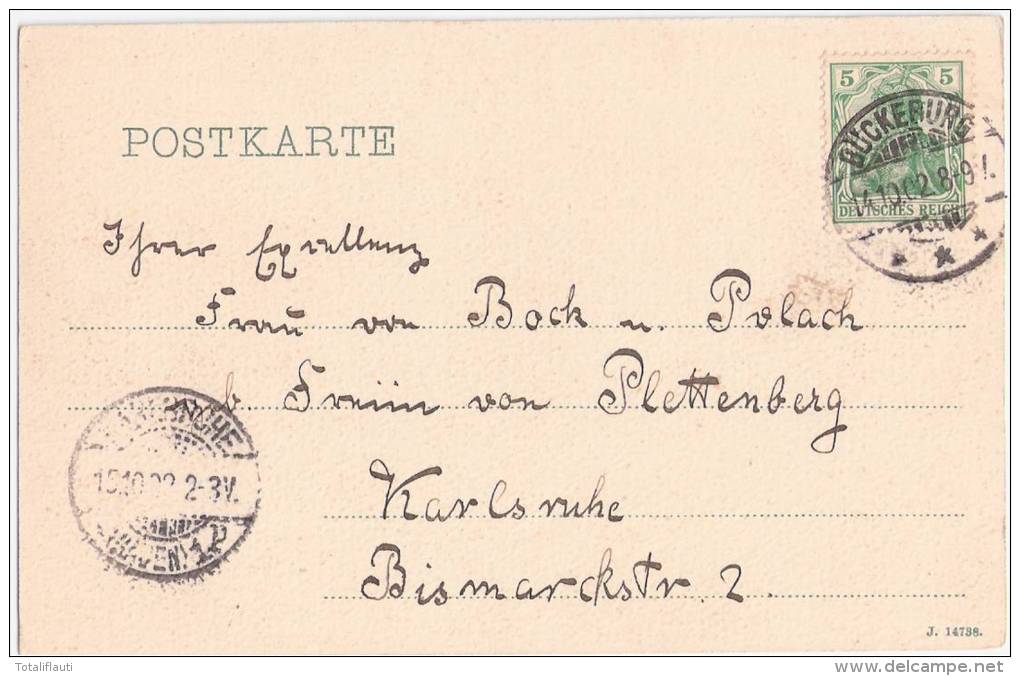 5 5
BÜCKEBURG
14.10.02.8-9
DEUTSCHES REICH
POSTKARTE
Ihrer Exzellenz
Frau von Bock u. Polach
b. Freiin von Plettenberg
KARLSRUHE
15.10.02.2-3V.
(BADEN) 1P
Karlsruhe
Bismarckstr. 2.
J. 14738.
Totaliflauti
www.delcampe.net